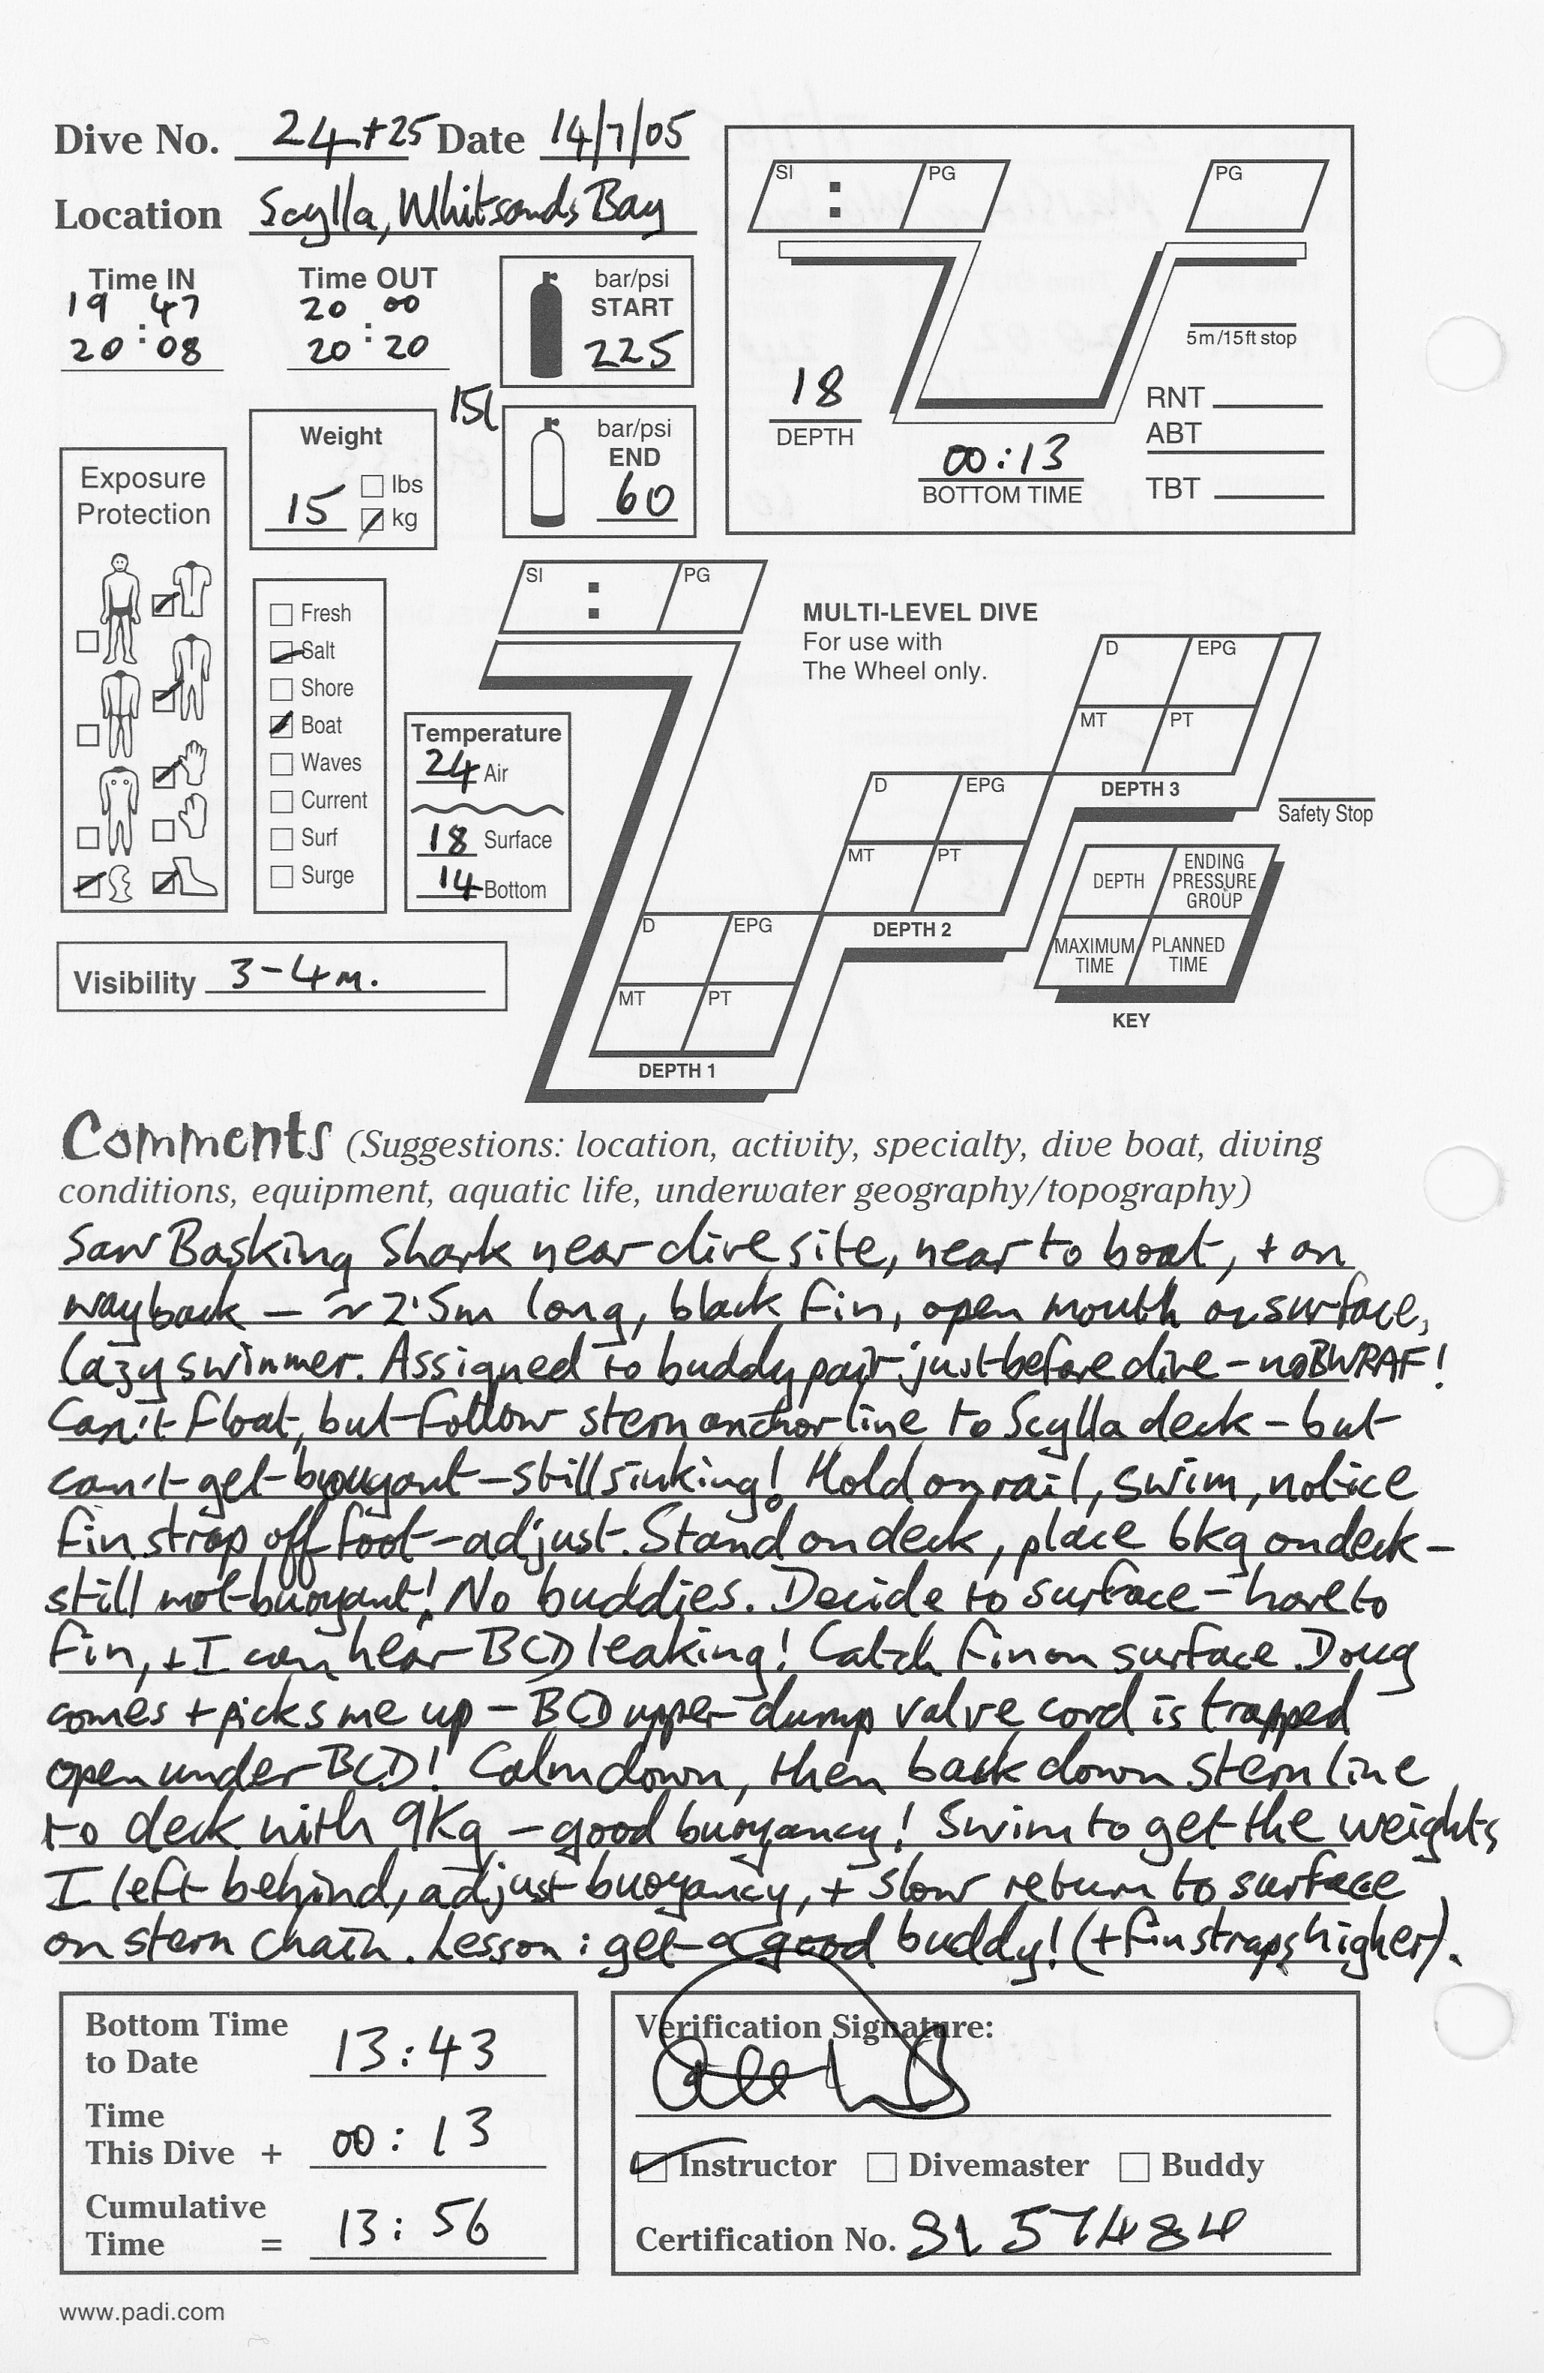 Dive No. 24+25 Date 14/7/05
Location Scylla, Whitsands Bay
Time IN
19 47
20:08
Time OUT
20 00
20:20
bar/psi
START
225
15l
bar/psi
END
60
SI : PG
PG
5m/15ft stop
18
DEPTH
00:13
BOTTOM TIME
RNT
ABT
TBT
Exposure
Protection
Weight
15 lbs
kg
Fresh
Salt
Shore
Boat
Waves
Current
Surf
Surge
Temperature
24 Air
18 Surface
14 Bottom
Visibility 3-4m.
SI : PG
MULTI-LEVEL DIVE
For use with
The Wheel only.
D EPG
MT PT
DEPTH 3
D EPG
MT PT
DEPTH 2
D EPG
MT PT
DEPTH 1
Safety Stop
DEPTH
ENDING
PRESSURE
GROUP
MAXIMUM
TIME
PLANNED
TIME
KEY
Comments (Suggestions: location, activity, specialty, dive boat, diving
conditions, equipment, aquatic life, underwater geography/topography)
Saw Basking Shark near dive site, near to boat, + on
way back – ~2.5m long, black fin, open mouth on surface,
lazy swimmer. Assigned to buddy pair just before dive – no BWRAF!
Can't float, but follow stern anchor line to Scylla deck – but
can't get buoyant – still sinking! Hold on rail, swim, notice
fin strap off foot – adjust. Stand on deck, place 6kg on deck –
still not buoyant! No buddies. Decide to surface – have to
fin, + I can hear BCD leaking! Catch fin on surface. Doug
comes + picks me up – BCD upper dump valve cord is trapped
open under BCD! Calm down, then back down stern line
to deck with 9Kg – good buoyancy! Swim to get the weights
I left behind, adjust buoyancy, + slow return to surface
on stern chain. Lesson: get a good buddy! (+ fin straps higher).
Bottom Time
to Date 13:43
Time
This Dive + 00:13
Cumulative
Time = 13:56
Verification Signature:
Instructor Divemaster Buddy
Certification No.
www.padi.com